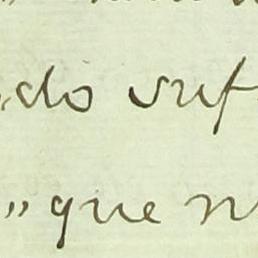 do suf
" que n